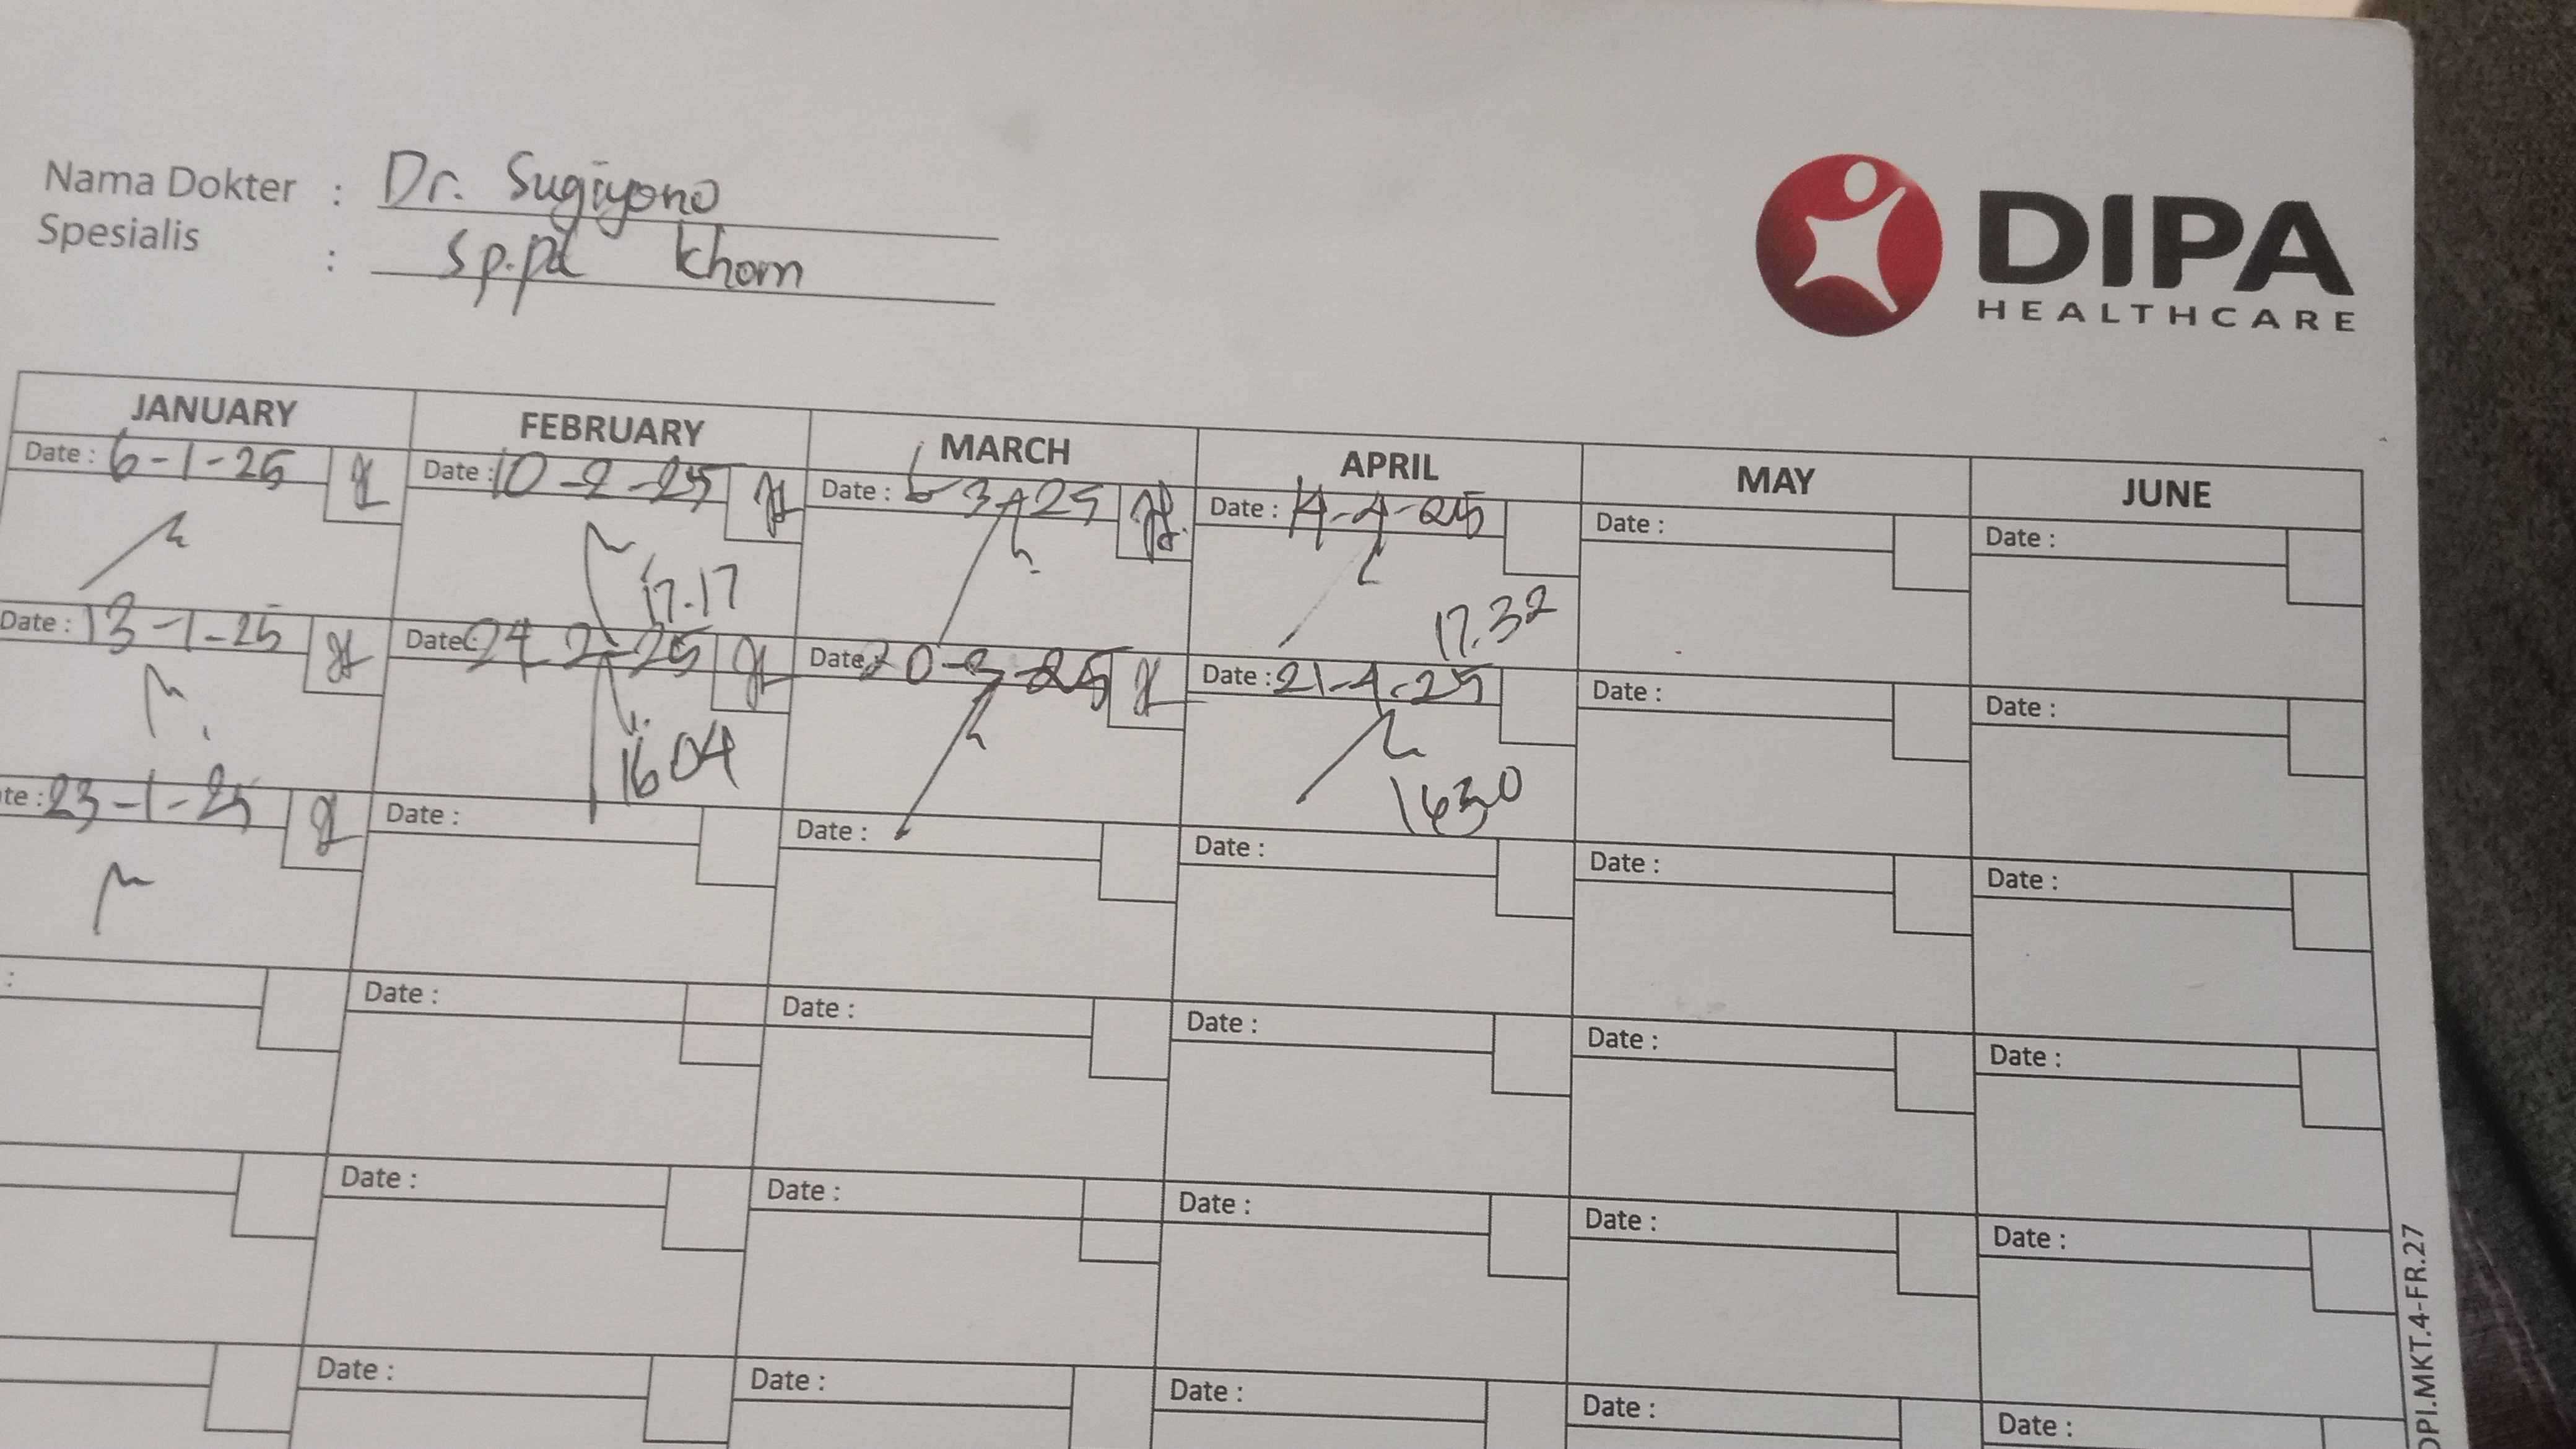 Nama Dokter : Dr. Sugiyono
Spesialis : Sp.pd khom
DIPA
HEALTHCARE
JANUARY FEBRUARY MARCH APRIL MAY JUNE
Date : 6-1-25 Date : 10-2-25 Date : 6-3-25 Date : 14-4-25 Date : Date :
17.17 17.32
Date : 13-1-25 Date : 24-2-25 Date : 20-3-25 Date : 21-4-25 Date : Date :
16 04 1630
te : 23-1-25 Date : Date : Date : Date : Date :
: Date : Date : Date : Date : Date :
Date : Date : Date : Date : Date :
Date : Date : Date : Date : Date :
DPI.MKT.4-FR.27